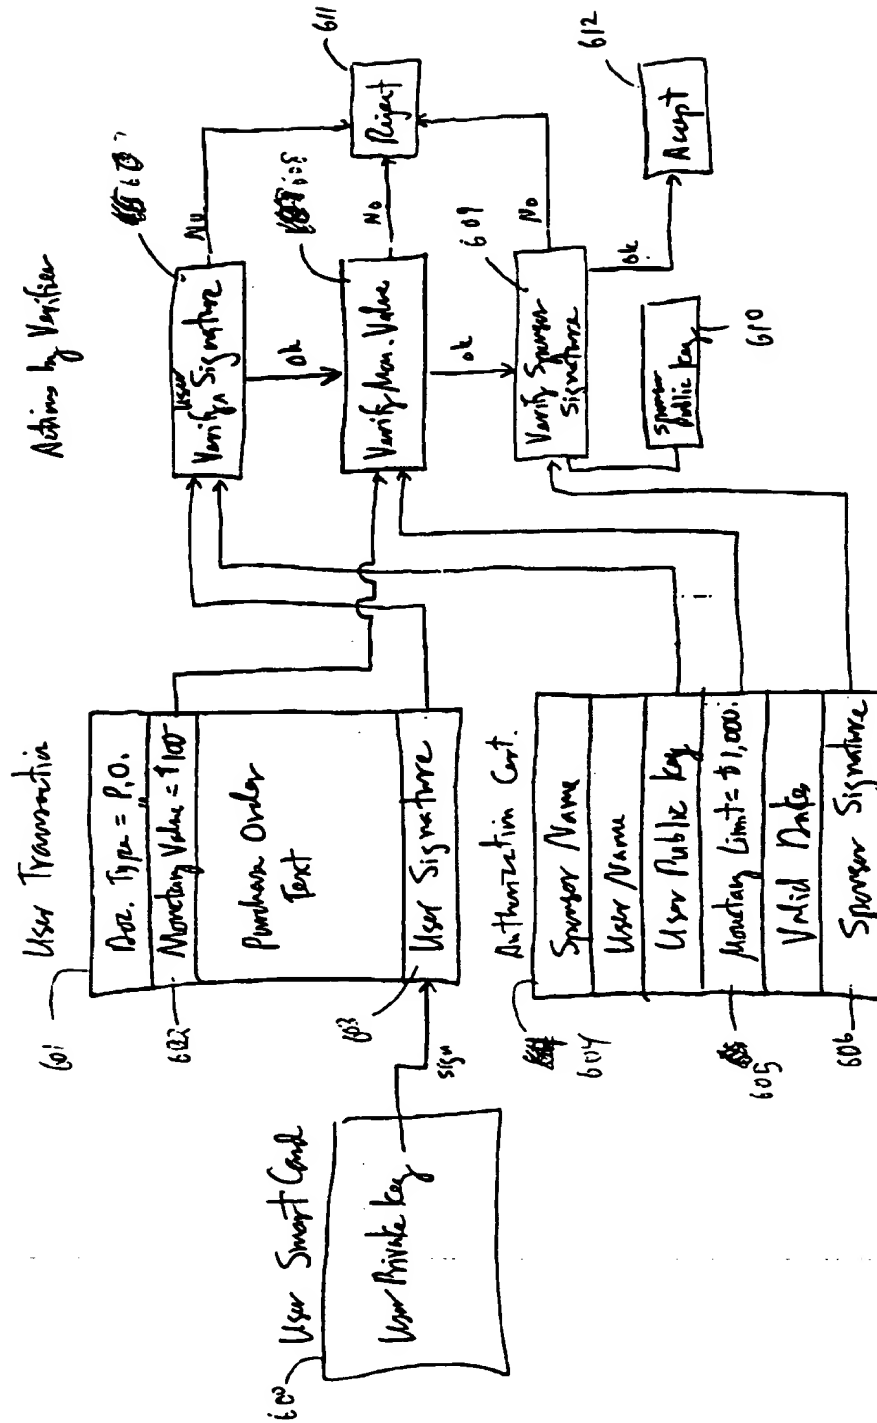 User Smart Card
600
User Private Key
sign
User Transaction
601
Doc. Type = P.O.
602
Monetary Value = $100
Purchase Order
Text
603
User Signature
Authorization Cert.
604
Sponsor Name
User Name
User Public Key
605
Monetary Limit = $1,000.
Valid Dates
606
Sponsor Signature
Actions by Verifier
user
Verify Signature
No
ok
Verify Mon. Value
No
ok
609
Verify Sponsor
Signature
No
ok
Sponsor
Public Key
610
611
Reject
612
Accept